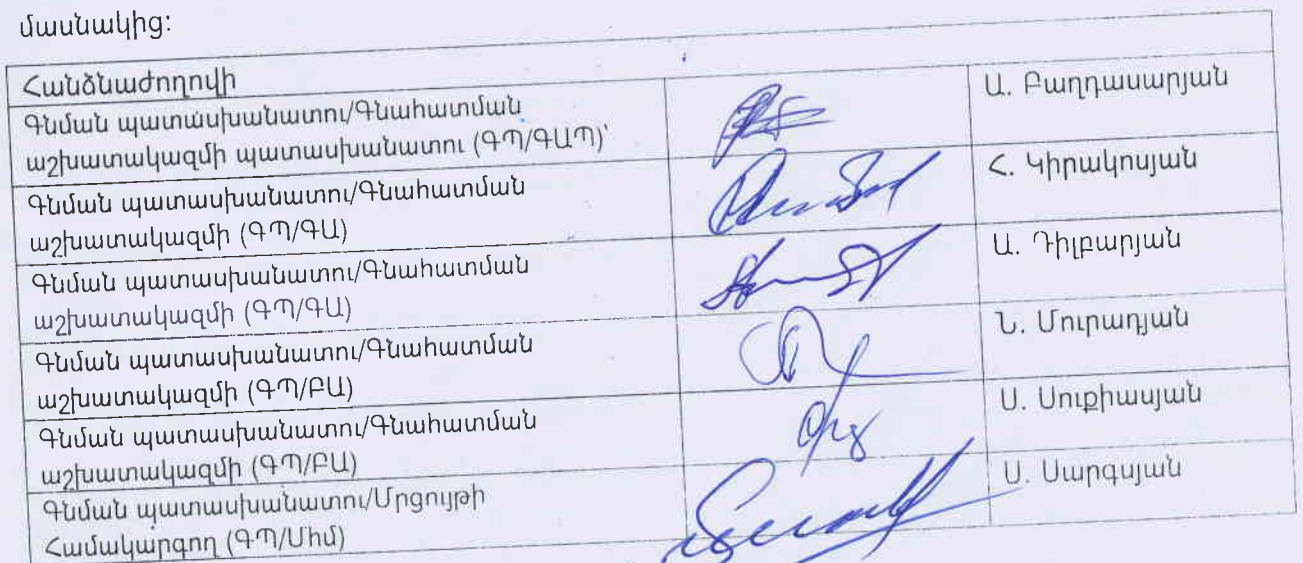 մասնակից:
Հանձնաժողովի
Գնման պատասխանատու/Գնահատման
աշխատակազմի պատասխանատու (ԳՊ/ԳԱՊ)՝
Ա. Բաղդասարյան
Գնման պատասխանատու/Գնահատման
աշխատակազմի (ԳՊ/ԳԱ)
Հ. Կիրակոսյան
Գնման պատասխանատու/Գնահատման
աշխատակազմի (ԳՊ/ԳԱ)
Ա. Դիլբարյան
Գնման պատասխանատու/Գնահատման
աշխատակազմի (ԳՊ/ԲԱ)
Ն. Մուրադյան
Գնման պատասխանատու/Գնահատման
աշխատակազմի (ԳՊ/ԲԱ)
Ս. Սուքիասյան
Գնման պատասխանատու/Մրցույթի
Համակարգող (ԳՊ/Միմ)
Ս. Սարգսյան